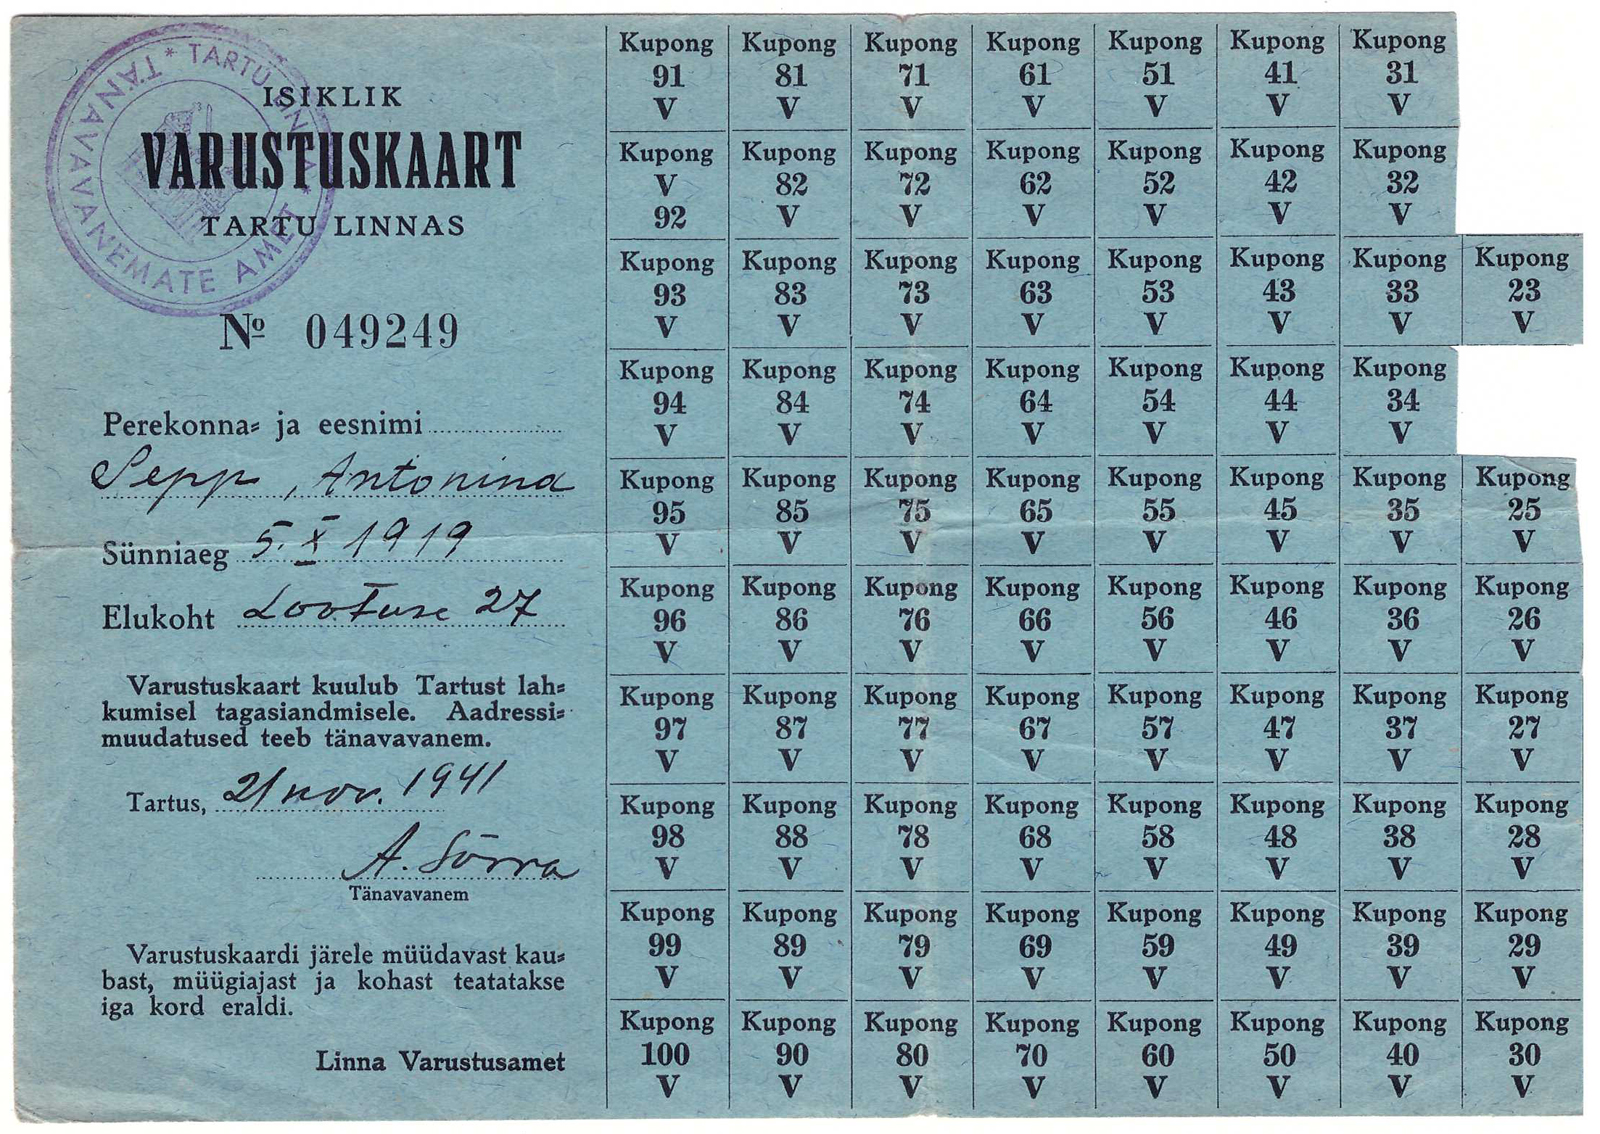 * TARTU LINNA * TÄNAVAVANEMATE AMET
ISIKLIK
VARUSTUSKAART
TARTU LINNAS
№ 049249
Perekonna= ja eesnimi
Sepp, Antonina
Sünniaeg 5. X 1919
Elukoht Lootuse 27
Varustuskaart kuulub Tartust lah=
kumisel tagasiandmisele. Aadressi=
muudatused teeb tänavavanem.
Tartus, 21 nov. 1941
A. Sõrra
Tänavavanem
Varustuskaardi järele müüdavast kau=
bast, müügiajast ja kohast teatatakse
iga kord eraldi.
Linna Varustusamet
Kupong Kupong Kupong Kupong Kupong Kupong Kupong
91 81 71 61 51 41 31
V V V V V V V
Kupong Kupong Kupong Kupong Kupong Kupong Kupong
V 82 72 62 52 42 32
92 V V V V V V
Kupong Kupong Kupong Kupong Kupong Kupong Kupong Kupong
93 83 73 63 53 43 33 23
V V V V V V V V
Kupong Kupong Kupong Kupong Kupong Kupong Kupong
94 84 74 64 54 44 34
V V V V V V V
Kupong Kupong Kupong Kupong Kupong Kupong Kupong Kupong
95 85 75 65 55 45 35 25
V V V V V V V V
Kupong Kupong Kupong Kupong Kupong Kupong Kupong Kupong
96 86 76 66 56 46 36 26
V V V V V V V V
Kupong Kupong Kupong Kupong Kupong Kupong Kupong Kupong
97 87 77 67 57 47 37 27
V V V V V V V V
Kupong Kupong Kupong Kupong Kupong Kupong Kupong Kupong
98 88 78 68 58 48 38 28
V V V V V V V V
Kupong Kupong Kupong Kupong Kupong Kupong Kupong Kupong
99 89 79 69 59 49 39 29
V V V V V V V V
Kupong Kupong Kupong Kupong Kupong Kupong Kupong Kupong
100 90 80 70 60 50 40 30
V V V V V V V V